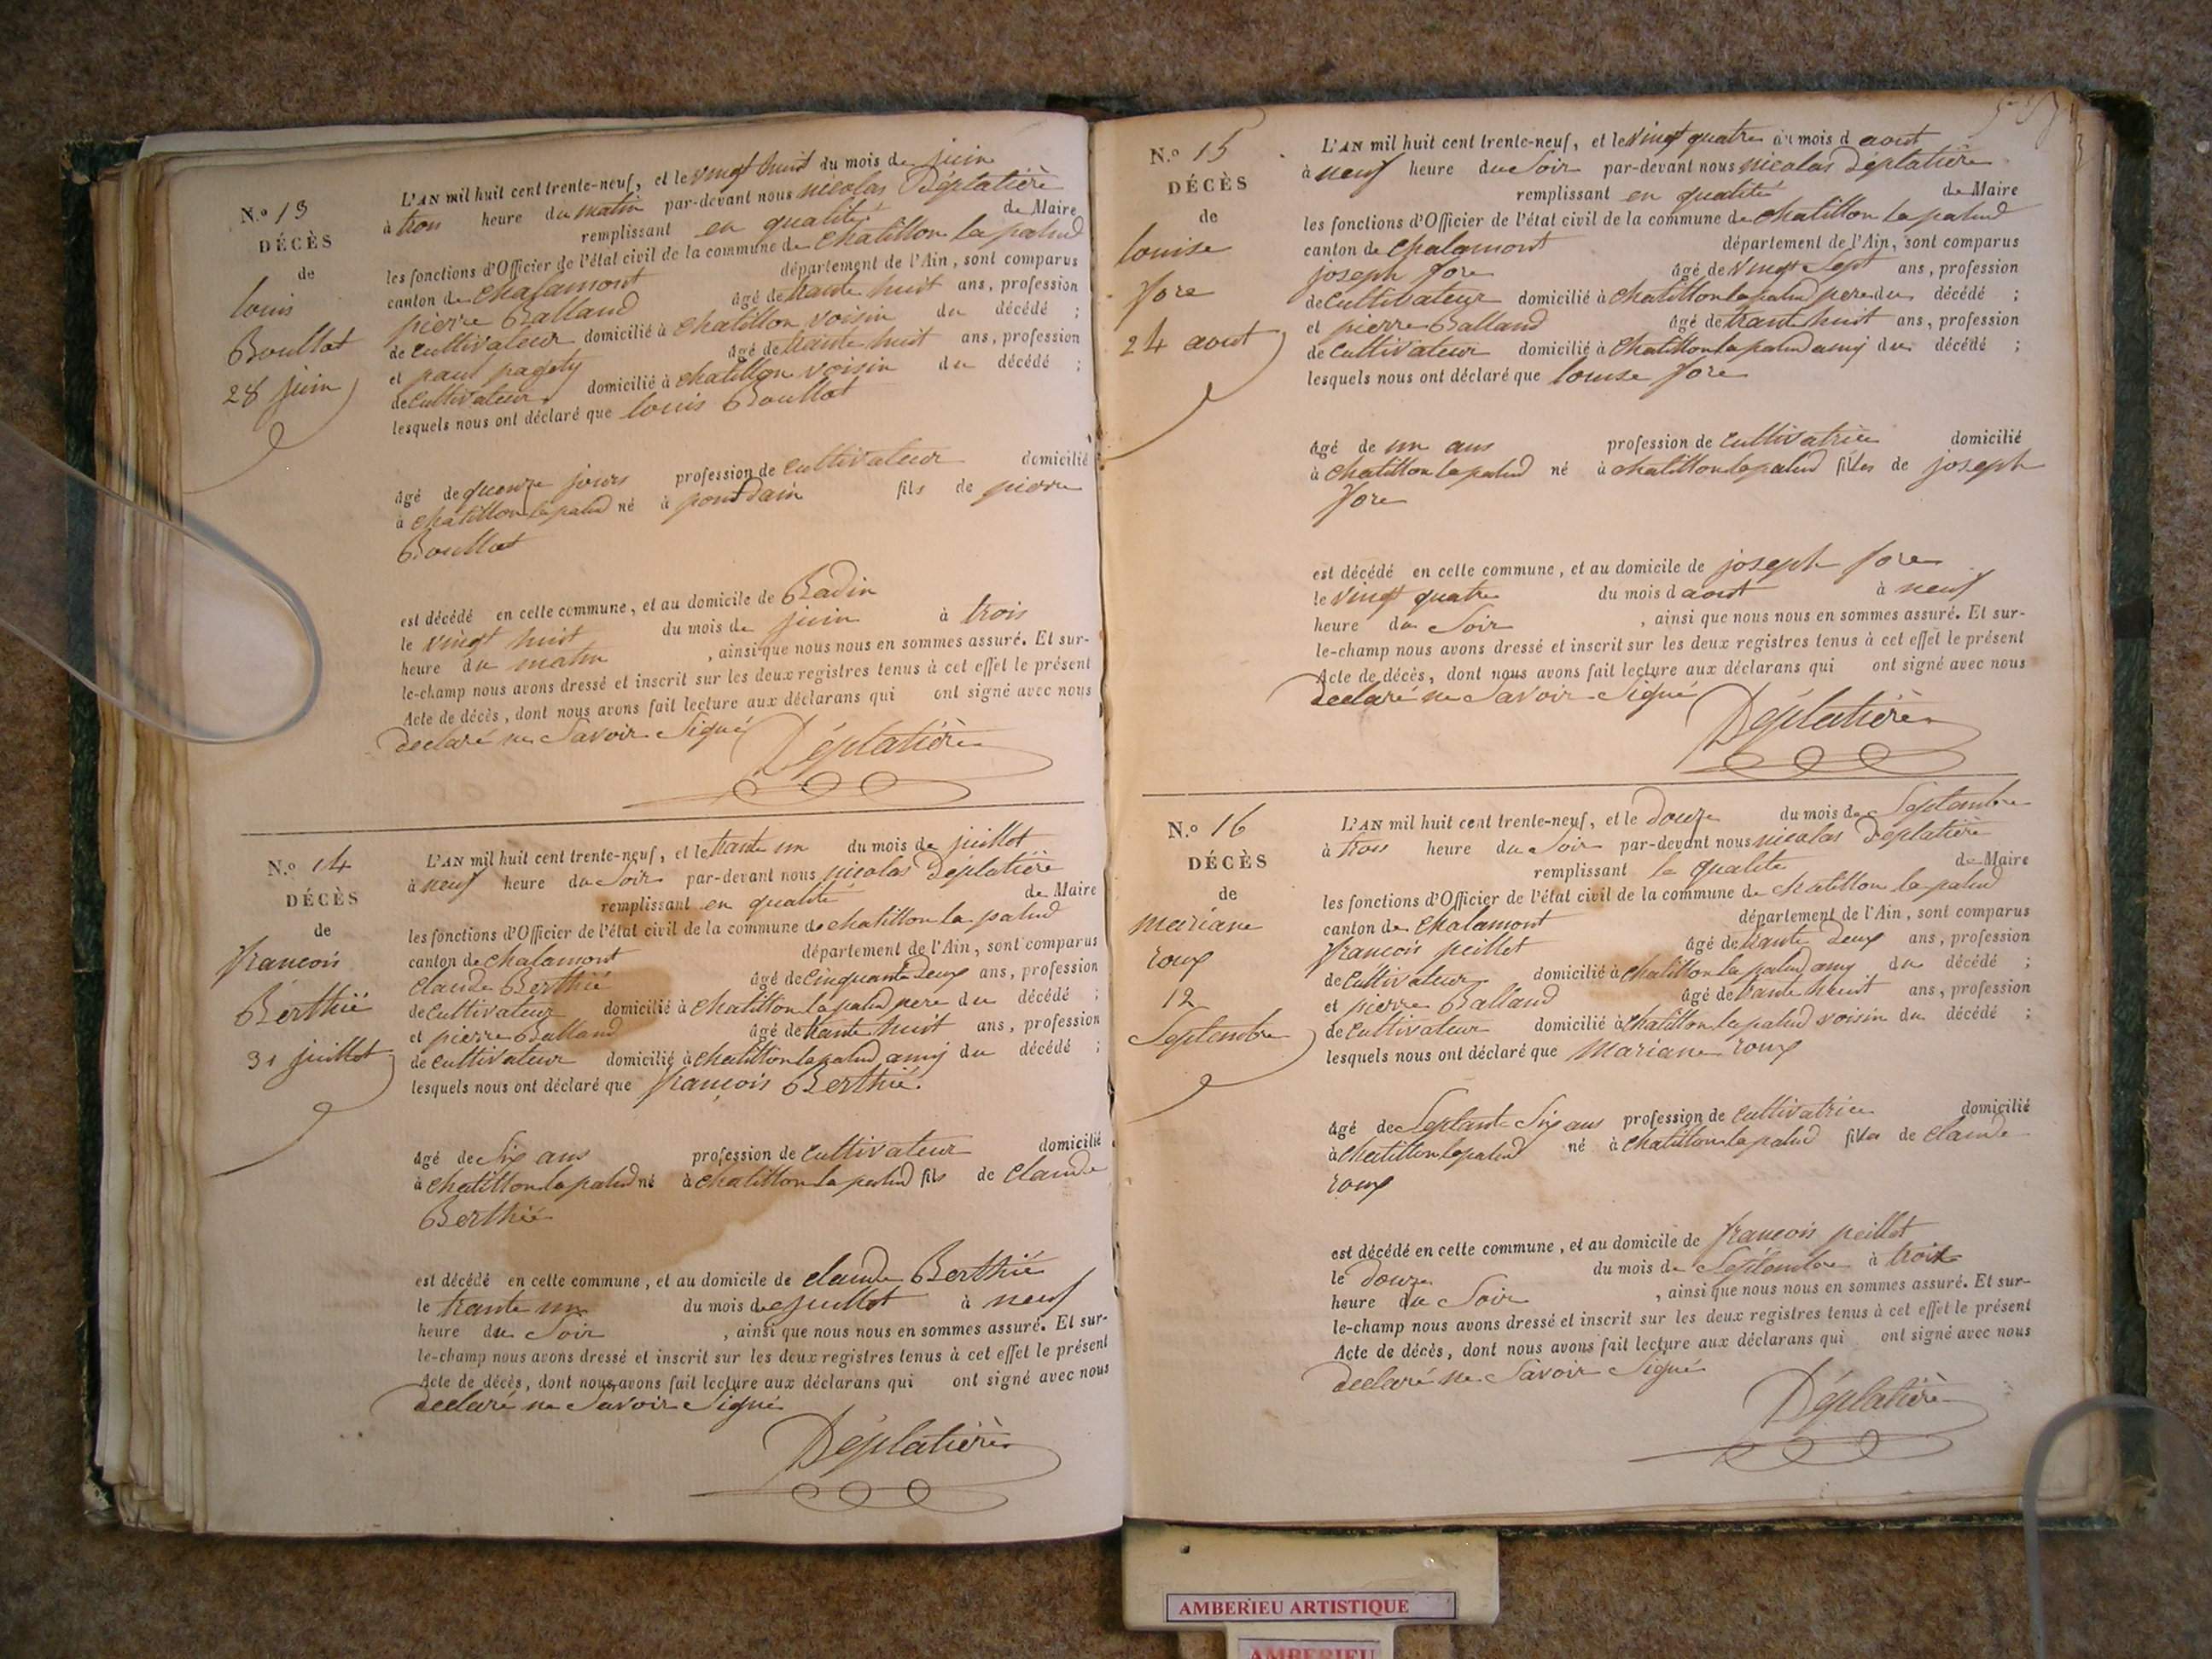 N.º 13
DÉCÈS
de
louis
Boullat
28 juin
L'AN mil huit cent trente-neuf, et le vingt huit du mois de juin
à trois heure du matin par-devant nous nicolas Déplatière
remplissant en qualité de Maire
les fonctions d'Officier de l'état civil de la commune de chatillon la palud
canton de chalamont département de l'Ain, sont comparus
pierre Balland âgé de trante huit ans, profession
de cultivateur domicilié à chatillon voisin du décédé ;
et paul pagety âgé de trante huit ans, profession
de cultivateur domicilié à chatillon voisin du décédé ;
lesquels nous ont déclaré que louis Boullat
âgé de quenze jours profession de cultivateur domicilié
à chatillon la palud né à pont dain fils de pierre
Boullat
est décédé en cette commune, et au domicile de Badin
le vingt huit du mois de juin à trois
heure du matin, ainsi que nous nous en sommes assuré. Et sur-
le-champ nous avons dressé et inscrit sur les deux registres tenus à cet effet le présent
Acte de décès, dont nous avons fait lecture aux déclarans qui ont signé avec nous
declaré ne Savoir Signé Déplatière
N.º 14
DÉCÈS
de
françois
Berthié
31 juillet
L'AN mil huit cent trente-neuf, et le trante un du mois de juillet
à neuf heure du Soir par-devant nous nicolas Déplatière
remplissant en qualité de Maire
les fonctions d'Officier de l'état civil de la commune de chatillon la palud
canton de chalamont département de l'Ain, sont comparus
claude Berthié âgé de cinquante deux ans, profession
de cultivateur domicilié à chatillon la palud pere du décédé ;
et pierre Balland âgé de trante huit ans, profession
de cultivateur domicilié à chatillon la palud amy du décédé ;
lesquels nous ont déclaré que françois Berthié
âgé de Six ans profession de cultivateur domicilié
à chatillon la palud né à chatillon la palud fils de claude
Berthié
est décédé en cette commune, et au domicile de claude Berthié
le trante un du mois de juillet à neuf
heure du Soir, ainsi que nous nous en sommes assuré. Et sur-
le-champ nous avons dressé et inscrit sur les deux registres tenus à cet effet le présent
Acte de décès, dont nous avons fait lecture aux déclarans qui ont signé avec nous
declaré ne Savoir Signé
Déplatière
N.º 15
DÉCÈS
de
louise
fore
24 aout
L'AN mil huit cent trente-neuf, et le vingt quatre du mois d aout
à neuf heure du Soir par-devant nous nicolas Déplatière
remplissant en qualité de Maire
les fonctions d'Officier de l'état civil de la commune de chatillon la palud
canton de chalamont département de l'Ain, sont comparus
joseph fore âgé de vingt Sept ans, profession
de cultivateur domicilié à chatillon la palud pere du décédé ;
et pierre Balland âgé de trante huit ans, profession
de cultivateur domicilié à chatillon la palud amy du décédé ;
lesquels nous ont déclaré que louise fore
âgé de un ans profession de cultivatrice domicilié
à chatillon la palud né à chatillon la palud filles de joseph
fore
est décédé en cette commune, et au domicile de joseph fore
le vingt quatre du mois d aout à neuf
heure du Soir, ainsi que nous nous en sommes assuré. Et sur-
le-champ nous avons dressé et inscrit sur les deux registres tenus à cet effet le présent
Acte de décès, dont nous avons fait lecture aux déclarans qui ont signé avec nous
declaré ne Savoir Signé Déplatière
N.º 16
DÉCÈS
de
mariane
roux
12
Septembre
L'AN mil huit cent trente-neuf, et le douze du mois de Septembre
à trois heure du Soir par-devant nous nicolas Déplatière
remplissant la qualité de Maire
les fonctions d'Officier de l'état civil de la commune de chatillon la palud
canton de chalamont département de l'Ain, sont comparus
françois peillet âgé de trante deux ans, profession
de cultivateur domicilié à chatillon la palud amy du décédé ;
et pierre Balland âgé de trante huit ans, profession
de cultivateur domicilié à chatillon la palud voisin du décédé ;
lesquels nous ont déclaré que mariane roux
âgé de Septante Six ans profession de cultivatrice domicilié
à chatillon la palud né à chatillon la palud filles de claude
roux
est décédé en cette commune, et au domicile de françois peillet
le douze du mois de Septembre à trois
heure du Soir, ainsi que nous nous en sommes assuré. Et sur-
le-champ nous avons dressé et inscrit sur les deux registres tenus à cet effet le présent
Acte de décès, dont nous avons fait lecture aux déclarans qui ont signé avec nous
declaré ne Savoir Signé
Déplatière
AMBERIEU ARTISTIQUE
AMBERIEU